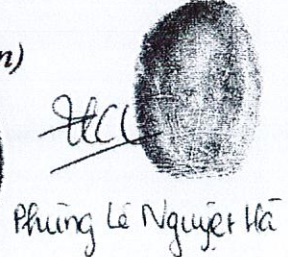 n)
Phùng Lê Nguyệt Hà